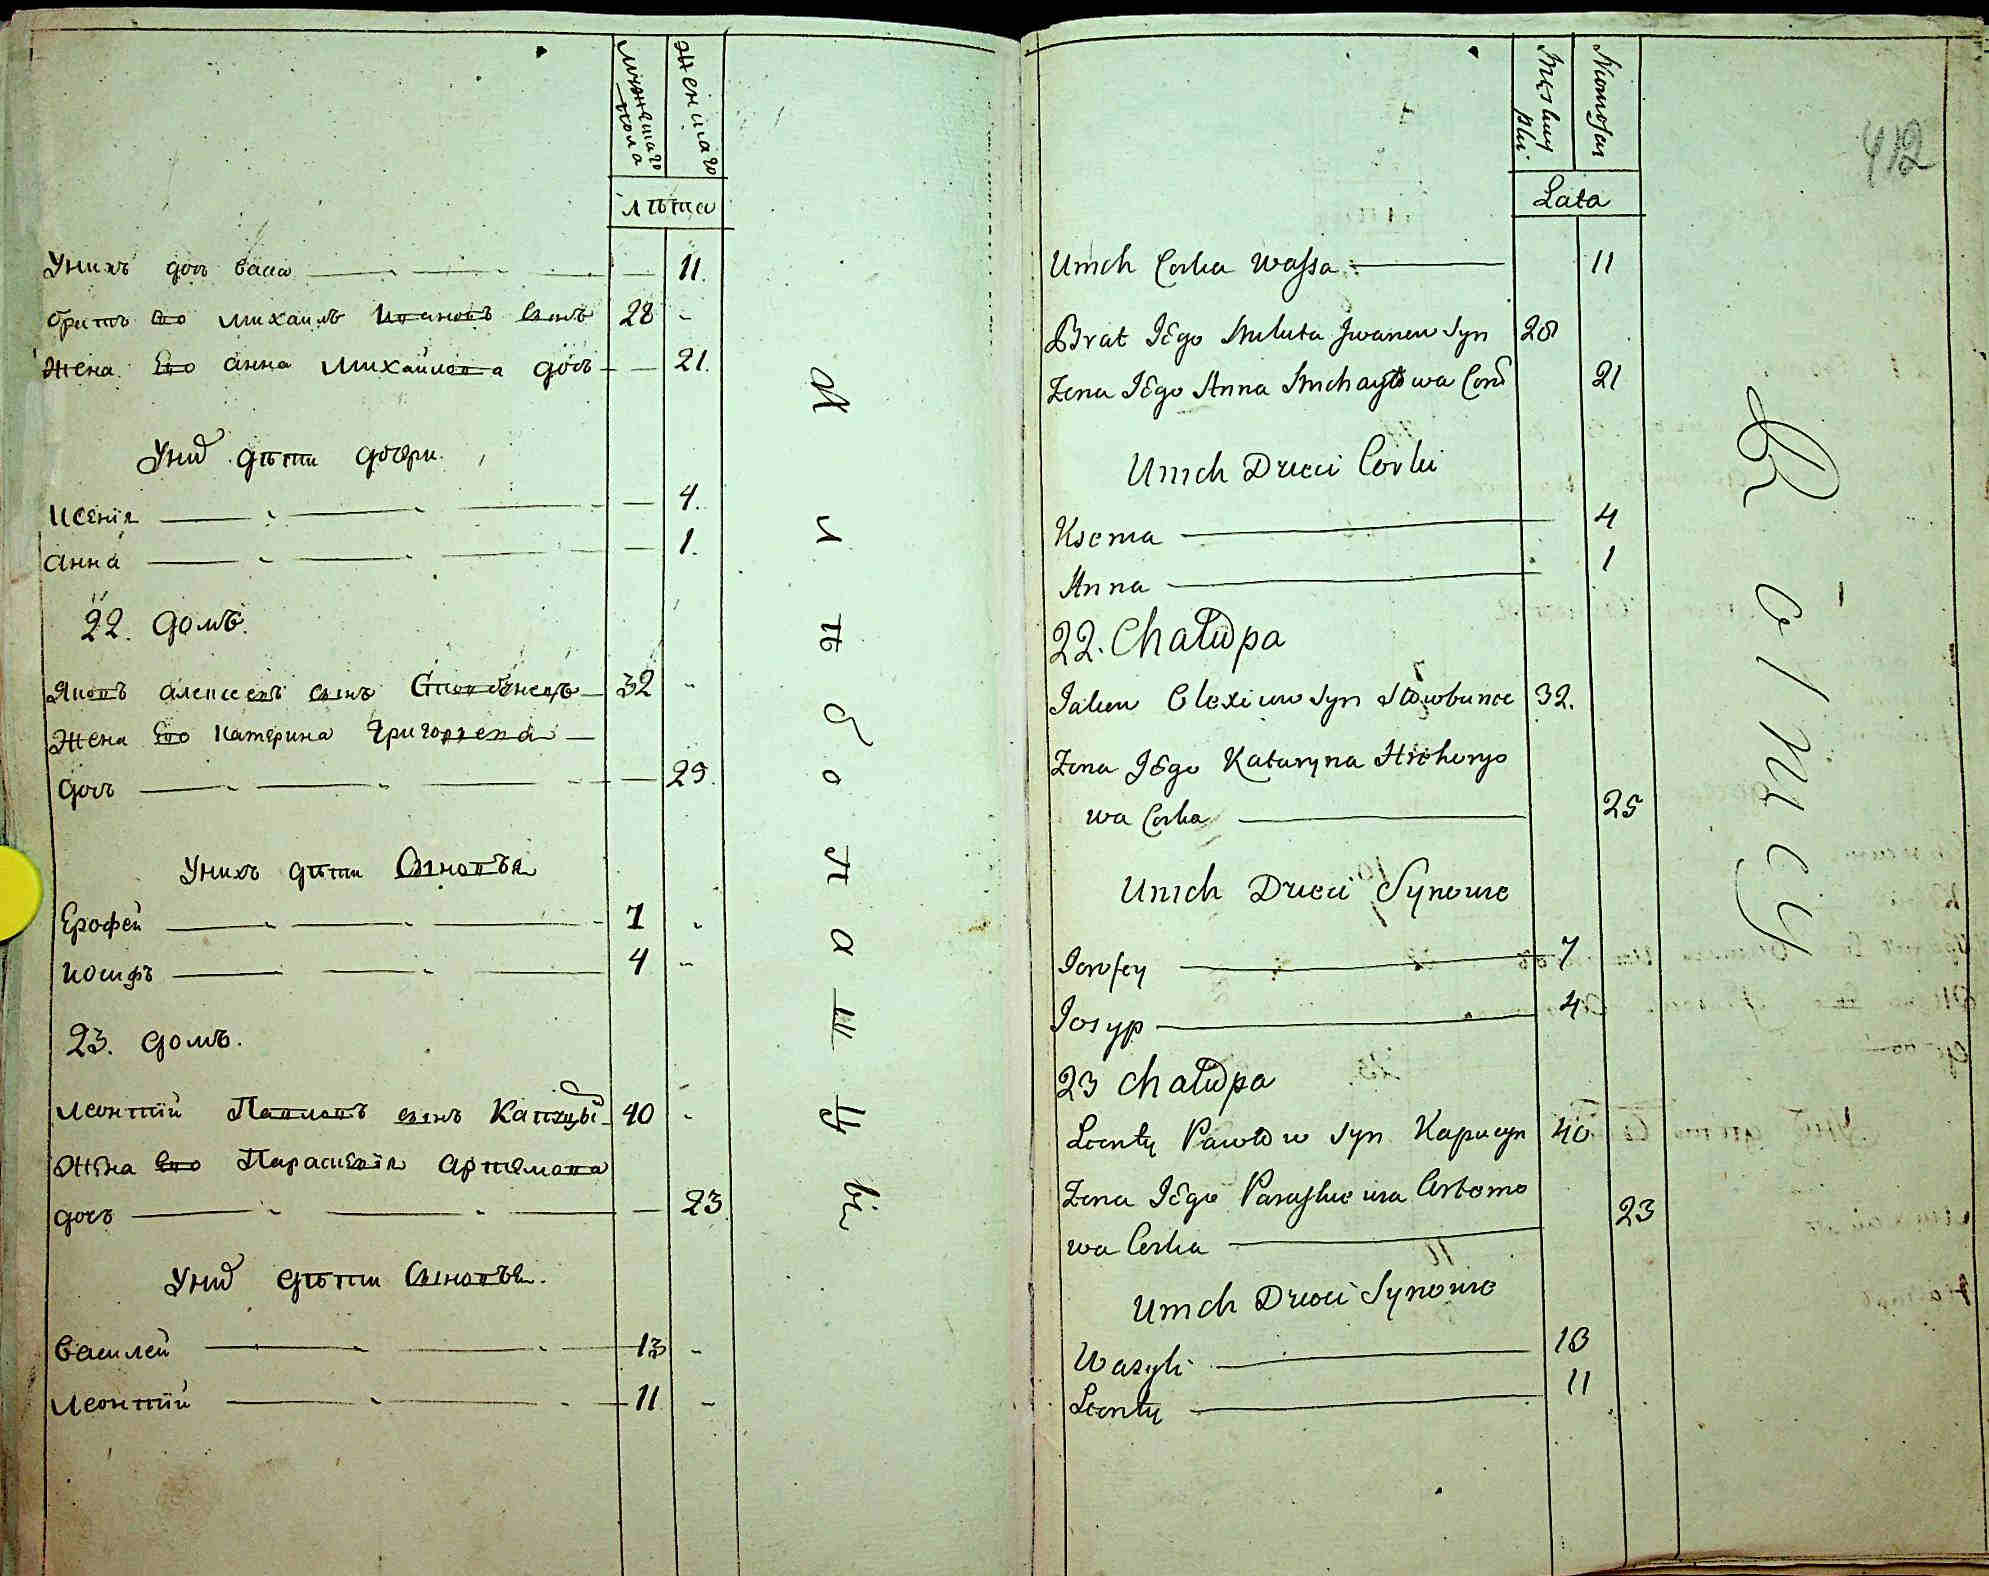 мужеска пола
женска
лѣта
Унихъ доч васа 11.
братъ его михаилъ Ивановъ сынъ 28
жена Его анна михайлова доч 21.
Уних дѣти дочери.
Ксенія 4.
анна 1.
22. домъ.
Яковъ алексеевъ сынъ Стовбунецъ 32
жена Его Катерина Григорьева
доч 25.
Унихъ дѣти Сыновья
Ерофей 7
иосифъ 4
23. домъ.
леонтий Павловъ сынъ Капуцын 40
жена его Параскевія артемова
доч 23
Уних дѣти Сыновья.
василей 13
леонтий 11
хлѣбопашцы
Męskiey płci
Niewiescey
Lata
412
Unich Corka Wassa 11
Brat Iego Miluta Jwanew Syn 28
Zona Iego Anna Michayłowa Cor 21
Unich Dzieci Corki
Ksenia 4
Anna 1
22. Chałupa
Iakow Olexiew Syn Stowbunec 32.
Zona Iego Kataryna Hrehorjo
wa Corka 25
Unich Dzieci Synowie
Jerofey 7
Iosyp 4
23 Chałupa
Leonty Pawłow Syn Kapucyn 40
Zona Iego Paraskiewia Artemo
wa Corka 23
Unich Dzieci Synowie
Wasyli 13
Leonty 11
Rolnicy